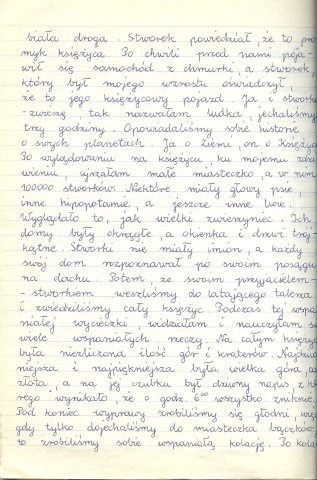 biała droga. Stworek powiedział, że to pro
myk księżyca. Po chwili przed nami poja-
wił się samochód z chmurki, a stworek,
który był mojego wzrostu oświadczył,
że to jego księżycowy pojazd. Ja i stworko
-zwierzę, tak nazwałam ludka, jechaliśmy
trzy godziny. Opowiadaliśmy sobie historie
o swych planetach. Ja o Ziemi, on o Księżycu
Po wylądowaniu na księżycu, ku mojemu zdzi
wieniu, ujrzałam małe miasteczko, a w nim
100000 stworków. Niektóre miały głowy psie,
inne hipopotamie, a jeszcze inne lwie.
Wyglądało to, jak wielki zwierzyniec. Ich
domy były okrągłe, a okienka i drzwi trój-
kątne. Stworki nie miały imion, a każdy
swój dom rozpoznawał po swoim posągu
na dachu. Potem, ze swoim przyjacielem-
-stworkiem weszliśmy do latającego talerza
i zwiedziliśmy cały księżyc. Podczas tej wspa
niałej wycieczki widziałam i nauczyłam się
wiele wspaniałych rzeczy. Na całym księżycu
była niezliczona ilość gór i kraterów. Najład
niejsza i najpiękniejsza była wielka góra, ze
złota, a na jej czubku był dziwny napis, z któ
rego wynikało, że o godz. 6⁰⁰ wszystko zniknie.
Pod koniec wyprawy zrobiliśmy się głodni, więc
gdy tylko dojechaliśmy do miasteczka
to zrobiliśmy sobie wspaniałą kolację. Po kola